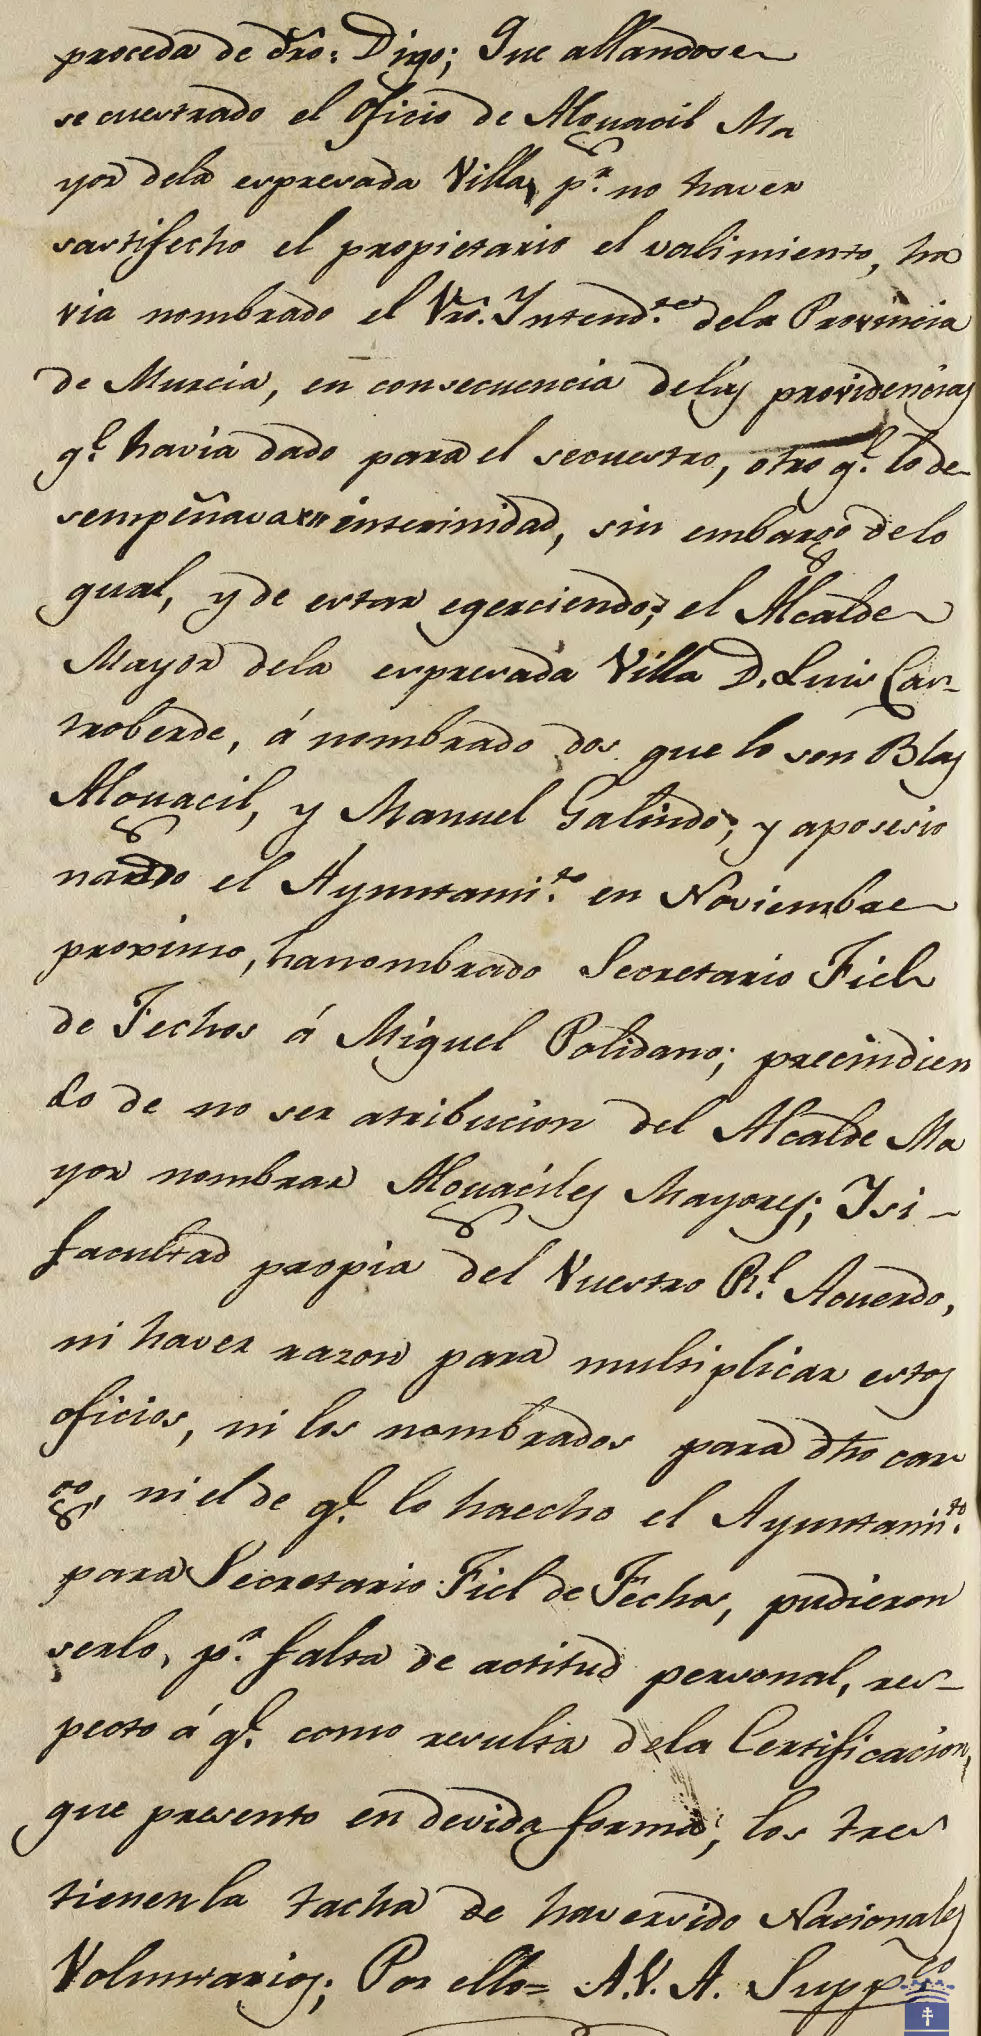 proceda de dro: Digo; Que allandose
secuestrado el Oficio de Alguacil Ma
yor dela expresada Villa, pr. no haver
sastifecho el propietario el valimiento, ha
via nombrado el Vro. Intend.te dela Provincia
de Murcia, en consecuencia delas providencias
q.e havia dado para el secuestro, otro q.e lo de-
sempeñava en interinidad, sin embargo delo
qual, y de estar egerciendo; el Alcalde
Mayor dela expresada Villa D. Luis Cas-
troberde, á nombrado dos que lo son Blas
Alguacil, y Manuel Galindo; y aposesio
nando el Ayuntami.to en Noviembre
proximo, hanombrado Secretario Fiel
de Fechos á Miguel Polidano; precindien
do de no ser atribucion del Alcalde Ma
yor nombrar Alguaciles Mayores; Ysi-
facultad propia del Vuestro Rl. Acuerdo,
ni haver razon para multiplicar estos
oficios, ni los nombrados para dho car
go, ni el de q.e lo haecho el Ayuntami.to
para Secretario Fiel de Fechos, pudieron
serlo, pr. falta de actitud personal, res-
pecto á q.e como resulta dela Certificacion,
que presento en devida forma; los tres
tienenla tacha de haversido Nacionales
Voluntarios; Por ello= A.V.A. Supp.co